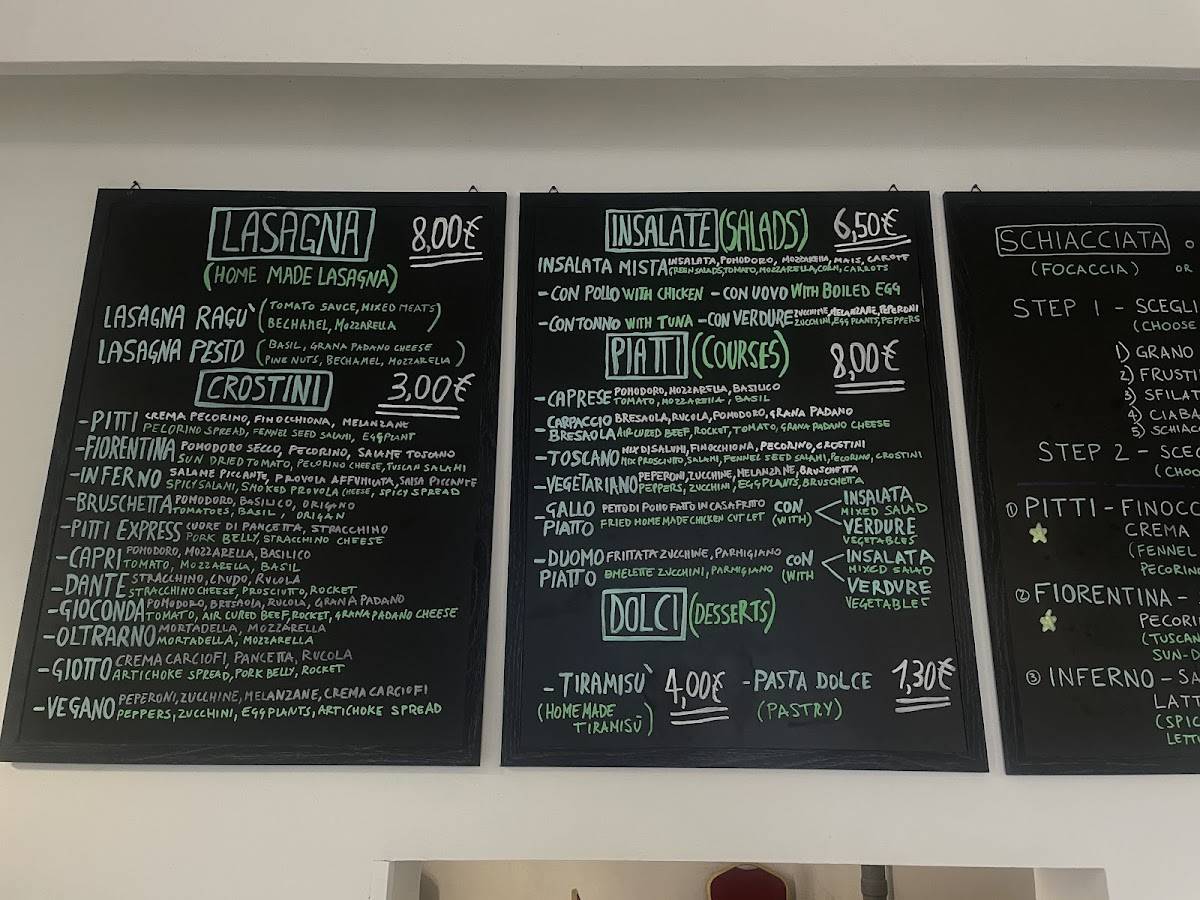 LASAGNA 8,00€
(HOME MADE LASAGNA)
LASAGNA RAGU' (TOMATO SAUCE, MIXED MEATS
BECHAMEL, MOZZARELLA)
LASAGNA PESTO (BASIL, GRANA PADANO CHEESE
PINE NUTS, BECHAMEL, MOZZARELLA)
CROSTINI 3,00€
-PITTI CREMA PECORINO, FINOCCHIONA, MELANZANE
PECORINO SPREAD, FENNEL SEED SALAMI, EGGPLANT
-FIORENTINA POMODORO SECCO, PECORINO, SALAME TOSCANO
SUN DRIED TOMATO, PECORINO CHEESE, TUSCAN SALAMI
-INFERNO SALAME PICCANTE, PROVOLA AFFUMICATA, SALSA PICCANTE
SPICY SALAMI, SMOKED PROVOLA CHEESE, SPICY SPREAD
-BRUSCHETTA POMODORO, BASILICO, ORIGANO
TOMATOES, BASIL, ORIGAN
-PITTI EXPRESS CUORE DI PANCETTA, STRACCHINO
PORK BELLY, STRACCHINO CHEESE
-CAPRI POMODORO, MOZZARELLA, BASILICO
TOMATO, MOZZARELLA, BASIL
-DANTE STRACCHINO, CRUDO, RUCOLA
STRACCHINO CHEESE, PROSCIUTTO, ROCKET
-GIOCONDA POMODORO, BRESAOLA, RUCOLA, GRANA PADANO
TOMATO, AIR CURED BEEF, ROCKET, GRANA PADANO CHEESE
-OLTRARNO MORTADELLA, MOZZARELLA
MORTADELLA, MOZZARELLA
-GIOTTO CREMA CARCIOFI, PANCETTA, RUCOLA
ARTICHOKE SPREAD, PORK BELLY, ROCKET
-VEGANO PEPERONI, ZUCCHINE, MELANZANE, CREMA CARCIOFI
PEPPERS, ZUCCHINI, EGGPLANTS, ARTICHOKE SPREAD
INSALATE (SALADS) 6,50€
INSALATA MISTA INSALATA, POMODORO, MOZZARELLA, MAIS, CAROTE
GREEN SALADS, TOMATO, MOZZARELLA, CORN, CARROTS
-CON POLLO WITH CHICKEN -CON UOVO WITH BOILED EGG
-CON TONNO WITH TUNA -CON VERDURE ZUCCHINE, MELANZANE, PEPERONI
ZUCCHINI, EGG PLANTS, PEPPERS
PIATTI (COURSES) 8,00€
-CAPRESE POMODORO, MOZZARELLA, BASILICO
TOMATO, MOZZARELLA, BASIL
-CARPACCIO BRESAOLA, RUCOLA, POMODORO, GRANA PADANO
BRESAOLA AIR CURED BEEF, ROCKET, TOMATO, GRANA PADANO CHEESE
-TOSCANO MIX DI SALUMI, FINOCCHIONA, PECORINO, CROSTINI
MIX PROSCIUTO, SALAMI, FENNEL SEED SALAMI, PECORINO, CROSTINI
-VEGETARIANO PEPERONI, ZUCCHINE, MELANZANE, BRUSCHETTA
PEPPERS, ZUCCHINI, EGGPLANTS, BRUSCHETTA
-GALLO PETTO DI POLLO FATTO IN CASA FRITTO CON INSALATA
PIATTO FRIED HOMEMADE CHICKEN CUTLET (WITH) MIXED SALAD
VERDURE
VEGETABLES
-DUOMO FRITTATA ZUCCHINE, PARMIGIANO CON INSALATA
PIATTO OMELETTE ZUCCHINI, PARMIGIANO (WITH MIXED SALAD
VERDURE
VEGETABLES
DOLCI (DESSERTS)
-TIRAMISU' 4,00€ -PASTA DOLCE 1,30€
(HOMEMADE TIRAMISÙ) (PASTRY)
SCHIACCIATA O
(FOCACCIA) OR
STEP 1 - SCEGLI
(CHOOSE
1) GRANO
2) FRUSTI
3) SFILAT
4) CIABA
5) SCHIAC
STEP 2 - SCEG
(CHOO
① PITTI - FINOCC
CREMA
(FENNEL
PECORINO
② FIORENTINA -
PECORI
(TUSCAN
SUN-D
③ INFERNO - SA
LATT
(SPIC
LETTU